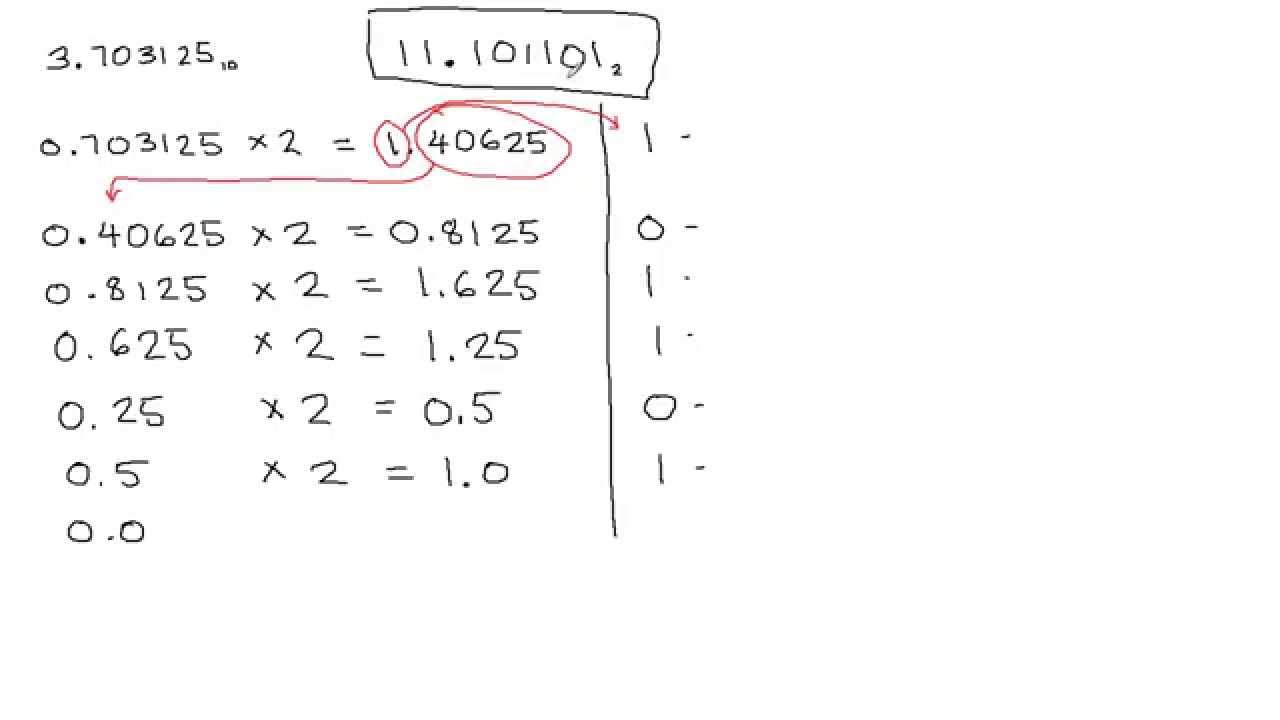 3.703125₁₀ 11.101101₂
0.703125 × 2 = 1.40625 1 -
0.40625 × 2 = 0.8125 0 -
0.8125 × 2 = 1.625 1 -
0.625 × 2 = 1.25 1 -
0.25 × 2 = 0.5 0 -
0.5 × 2 = 1.0 1 -
0.0